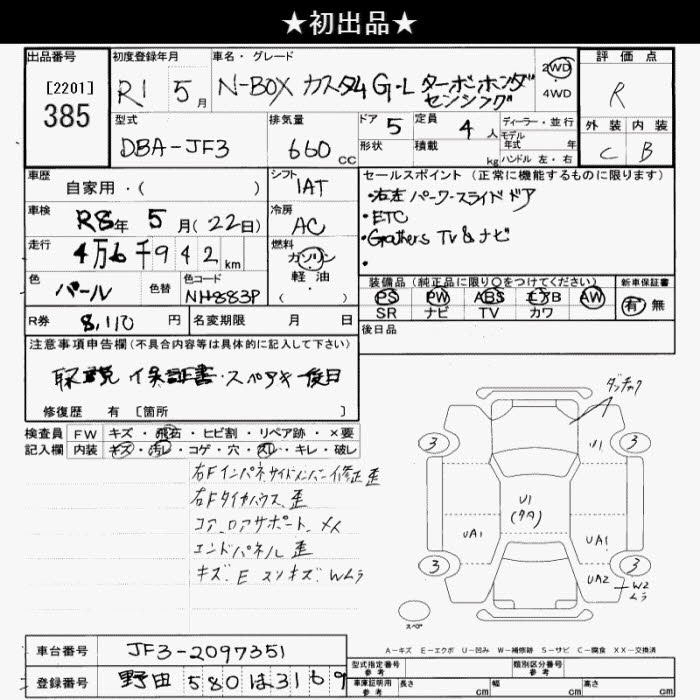 ★初出品★
出品番号 初度登録年月 車名・グレード 評価点
[2201] 385
R1 5月 N-BOX カスタム G・L ターボホンダセンシング 2WD 4WD R
型式 排気量 ドア 5 定員 4人 ディーラー・並行 外装 内装
DBA-JF3 660cc 形状 積載 kg モデル年式 年 ハンドル 左・右 C B
車歴 自家用・( ) シフト IAT セールスポイント (正常に機能するものに限ります)
車検 R8年 5月(22日) 冷房 AC
・右左 パワースライドドア
・ETC
・Gathers TV & ナビ
・
走行 4万6千942km 燃料 ガソリン 軽・油 ( )
色 パール 色替 色コード NH883P
装備品 (純正品に限り○をつけてください) 新車保証書
PS PW ABS エアB AW 有 無
SR ナビ TV カワ
R券 8,110円 名変期限 月 日 後日品
注意事項申告欄(不具合内容等は具体的に記入して下さい)
取説 保証書・スペアキー後日
修復歴 有 [箇所 ]
検査員 FW キズ・飛石・ヒビ割・リペア跡・×要
記入欄 内装 キズ・汚レ・コゲ・穴・スレ・キレ・破レ
右Fインパネ、サイドメンバー修正 歪
右Fタイヤハウス 歪
コア、ロアサポート メ
エンドパネル 歪
キズ E スリキズ Wムラ
3 3
U1
(タタ)
UA1 UA1
3 3
UA2 W2 ムラ
スペア
A-キズ E-エクボ U-凹み W-補修跡 S-サビ C-腐食 XX-交換済
車台番号 JF3-2097351 型式指定番号 参考 類別区分番号 参考
登録番号 野田 580 は 3169 車庫証明用 参考 長さ cm 幅 cm 高さ cm